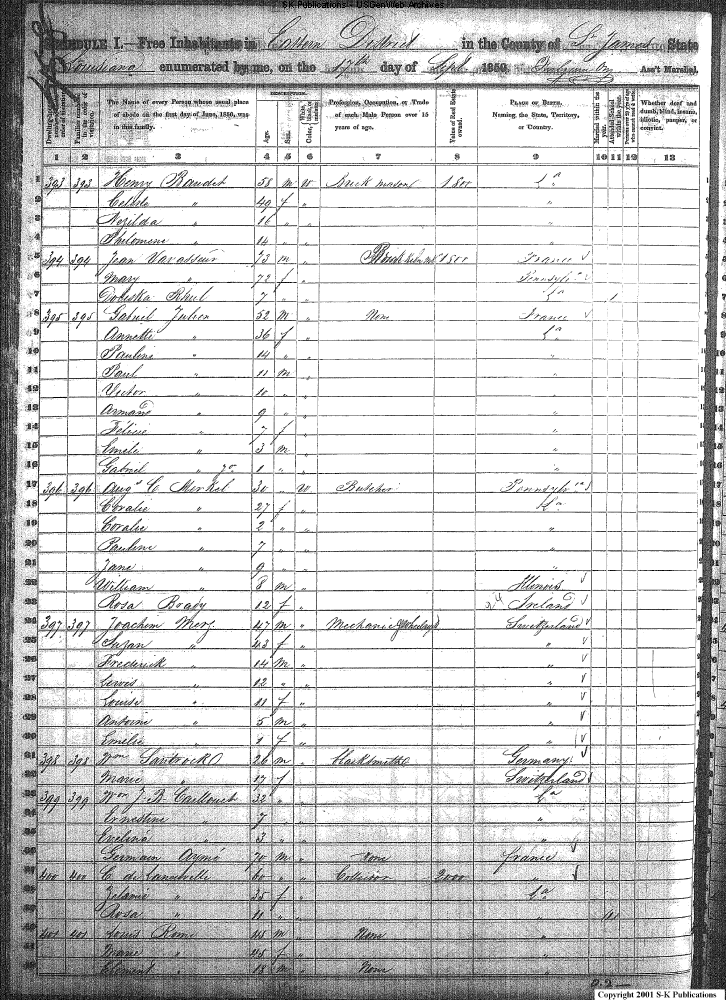 S-K Publications - USGenWeb Archives
SCHEDULE I.—Free Inhabitants in Eastern District in the County of St James State
of Louisiana enumerated by me, on the 17th day of Sept 1850. Ass't Marshal.
DESCRIPTION.
Dwelling-houses numbered in the order of visitation. Families numbered in the order of visitation. The Name of every Person whose usual place of abode on the first day of June, 1850, was in this family. Age. Sex. Color, White, black, or mulatto. Profession, Occupation, or Trade of each Male Person over 15 years of age. Value of Real Estate owned. PLACE OF BIRTH. Naming the State, Territory, or Country. Married within the year. Attended School within the year. Persons over 20 y'rs of age who cannot read & write. Whether deaf and dumb, blind, insane, idiotic, pauper, or convict.
1 2 3 4 5 6 7 8 9 10 11 12 13
393 393 Henry Baudet 58 m W Brick mason 1800 La
Celeste " 49 f "
Nozilda " 16 " "
Philomene " 14 " "
394 394 Jean Vavasseur 73 m " 1500 France
Mary " 72 f " Pennsylva
7 " " La 1
395 395 Gabriel Julien 52 M " None France
Annette " 36 f " La
Pauline " 14 " " "
Paul " 11 m "
Victor " 10 " "
Armand " 9 " " "
Felicie " 7 f " "
Emile " 3 m " "
Gabriel " Jr 1 " " "
396 396 Augt C Merkel 30 " W Butcher Pennsylva
Coralie " 27 f " La
Coralie " 2 " " "
Pauline " 7 " " "
Jane " 9 " " "
William " 8 m " Illinois
Rosa Brady 12 f " Ireland
397 397 Joachim Merz 47 m " Mechanic Switzerland
Suzan " 43 f " "
Frederick " 14 m " "
12 " " "
Louise " 11 f " "
Antoine " 5 m " "
Emelie " 1 f " "
398 398 Wm 26 m " blacksmith Germany
Marie " 17 f Switzerland
399 399 Wm J. B. Caillouet 32 " La
Ernestine " 7 " "
Evelina " 3 " "
Germain Aymé 70 m " None France
400 400 C de Lanneville 60 " " Collector 2000 "
Zelamie " 35 f " La
Rosa " 11 " " "
401 401 Louis Rome 48 m " None "
Marie " 45 f " "
Clement " 18 m " None "
Copyright 2001 S-K Publications